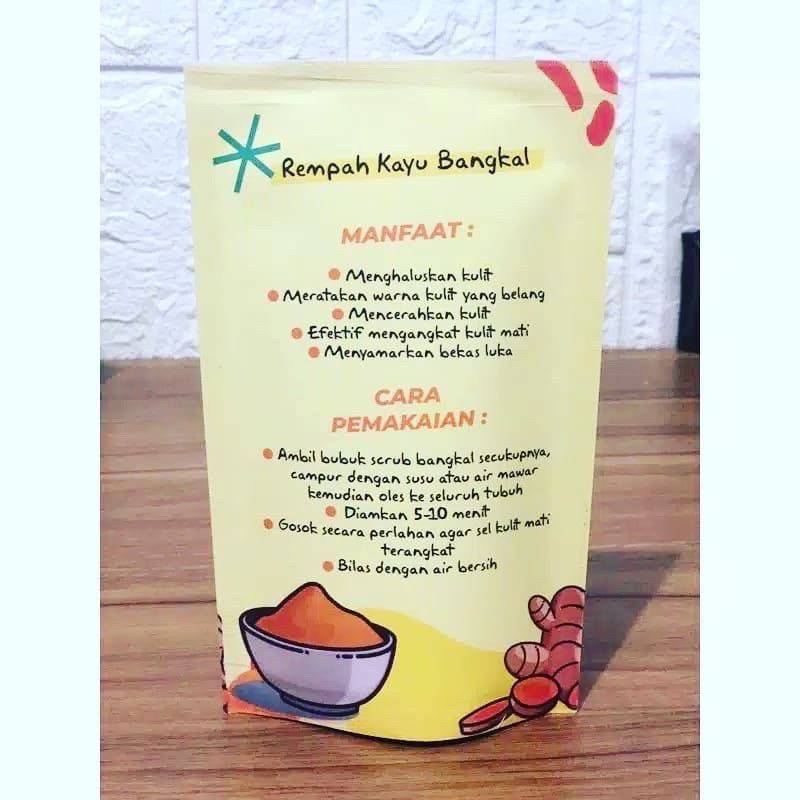 Rempah Kayu Bangkal
MANFAAT :
Menghaluskan kulit
Meratakan warna kulit yang belang
Mencerahkan kulit
Efektif mengangkat kulit mati
Menyamarkan bekas luka
CARA
PEMAKAIAN :
Ambil bubuk scrub bangkal secukupnya,
campur dengan susu atau air mawar
kemudian oles ke seluruh tubuh
Diamkan 5-10 menit
Gosok secara perlahan agar sel kulit mati
terangkat
Bilas dengan air bersih